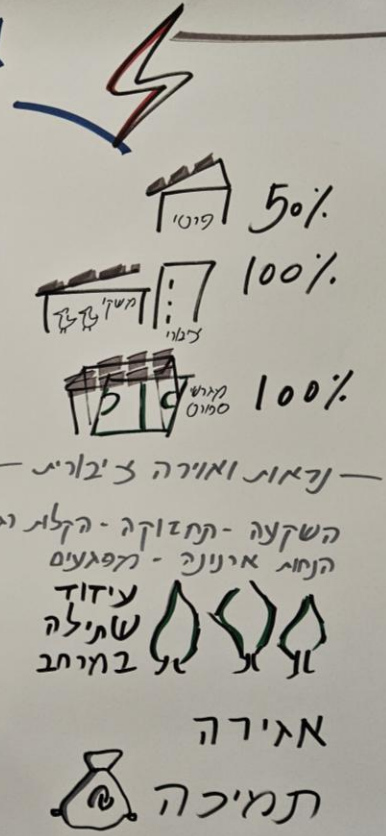 פרטי 50%
משקי 100%
ציבורי
מגרש 100%
ספורט
נראות ואוירה ציבורית
השקעה - תחזוקה - הקלות
הנחות ארנונה - מפגעים
עידוד
שתילה
במרחב
אגירה
תמיכה
₪